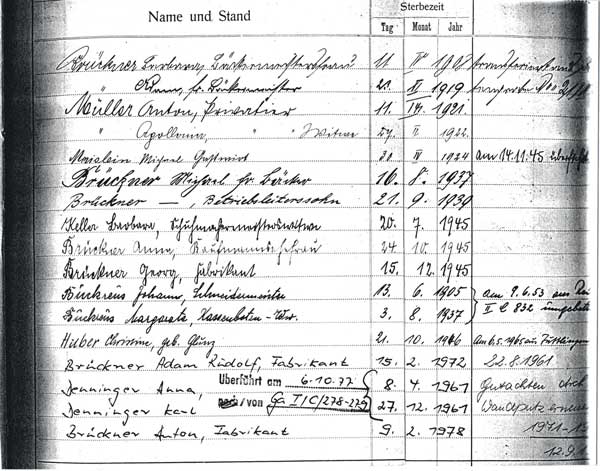 Name und Stand Sterbezeit
Tag Monat Jahr
Brückner Barbara, Bäckermeistersfrau 11. IV 1908
" fr. Bäckermeister 23. XI 1919
Müller Anton, Privatier 11. IV. 1921.
" Apollonia, " Witwe 27. II. 1922.
Michael Gastwirt 20. IV 1924 am 14.11.45
Brückner Michael fr. Bäcker 16. 8. 1937
Brückner — , Betriebsleiterssohn 21. 9. 1939
Keller Barbara, Schuhmachermeisterswitwe 20. 7. 1945
Brückner Anna, Kaufmannsehefrau 24. 10. 1945
Brückner Georg, Fabrikant 15. 12. 1945
Bückreus Johann, Schneidermeister 13. 6. 1905 am 9.6.53 aus
Bückreus Margareta, Kassenboten-Wwe. 3. 8. 1937 II C 832 umgebettet
Huber Christine, geb. 21. 10. 1946 Am 6.5.1965 aus Tuttlingen
Brückner Adam Rudolf, Fabrikant 15. 2. 1972 22.8.1961
Denninger Anna, Überführt am 6.10.77 8. 4. 1961 Gutachten
Denninger Karl /von Ga I/C/278-279 27. 12. 1961 Wandputz
Brückner Anton, Fabrikant 9. 2. 1978 1971-
12.9.